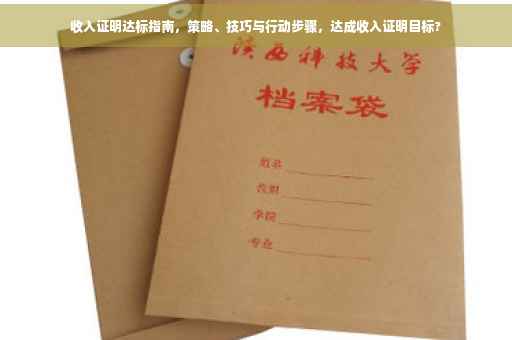 收入证明达标指南，策略、技巧与行动步骤，达成收入证明目标？
陕西科技大学
档案袋
姓名
学院
专业